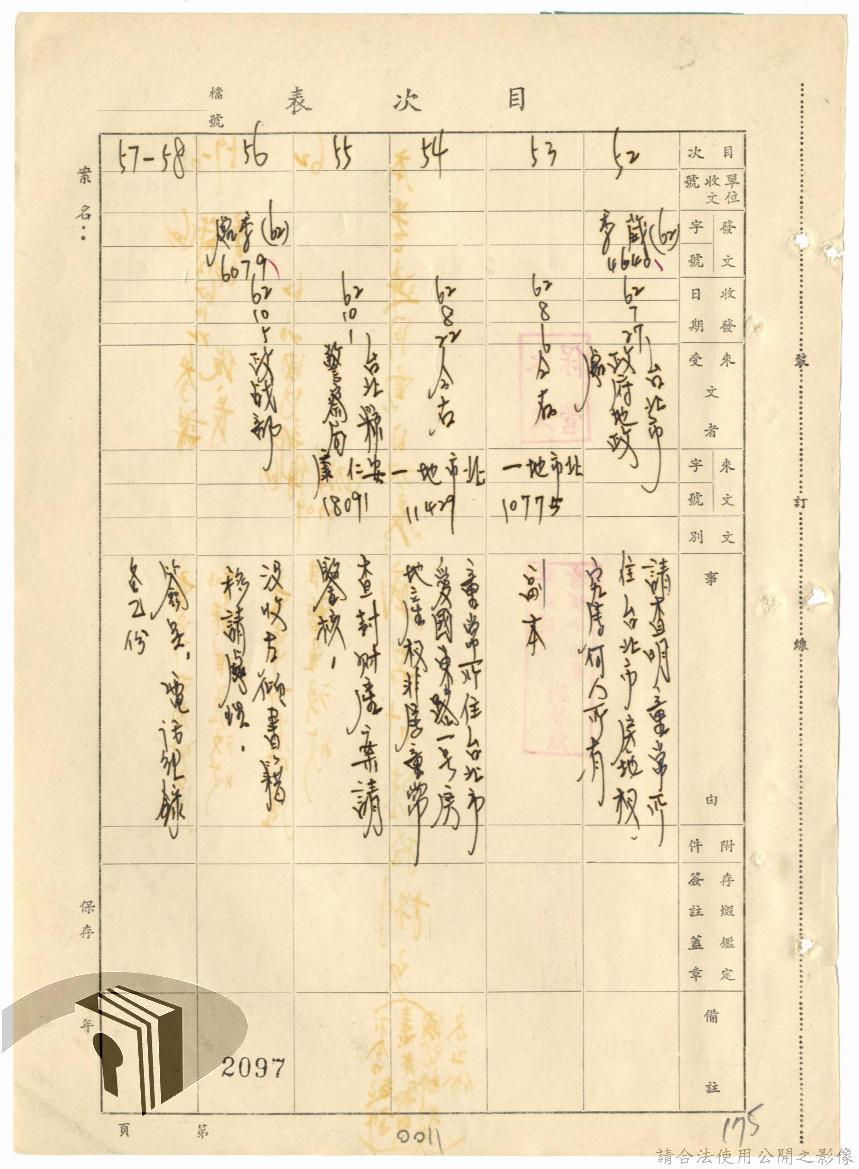 目次表
檔號
案名：
保存
年
目次
單位收文號
發文字號
收發日期
來文者
受文者
來文字號
文別
事由
附件
存燬鑑定簽註蓋章
備註
裝訂線
52
(62)
4640
62
7
27
台北市
政府地政
處
請查明童常所
住台北市房地权
究屬何人所有
53
62
8
6
仝右
北市地一
10775
副本
54
62
8
22
仝右
北市地一
11429
童常所住台北市
愛國東路一号房
地產权非屬童常
55
62
10
1
台北縣
警察局
安仁
18091
查封財產案請
鑒核
56
(62)
6079
62
10
5
政战部
没收古硕書籍
移請處理
57-58
簽呈，電話紀錄
各乙份
2097
第
頁
0011
175
請合法使用公開之影像